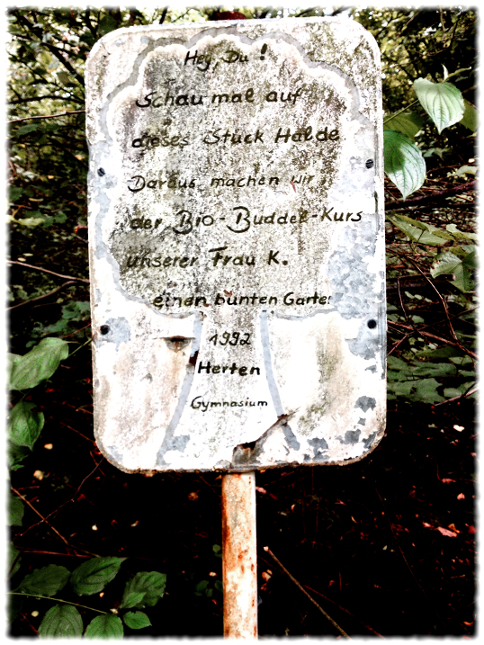 Hey, Du!
Schau mal auf
dieses Stück Halde
Daraus machen wir
der Bio-Buddel-Kurs
unserer Frau K.
einen bunten Garten
1992
Herten
Gymnasium